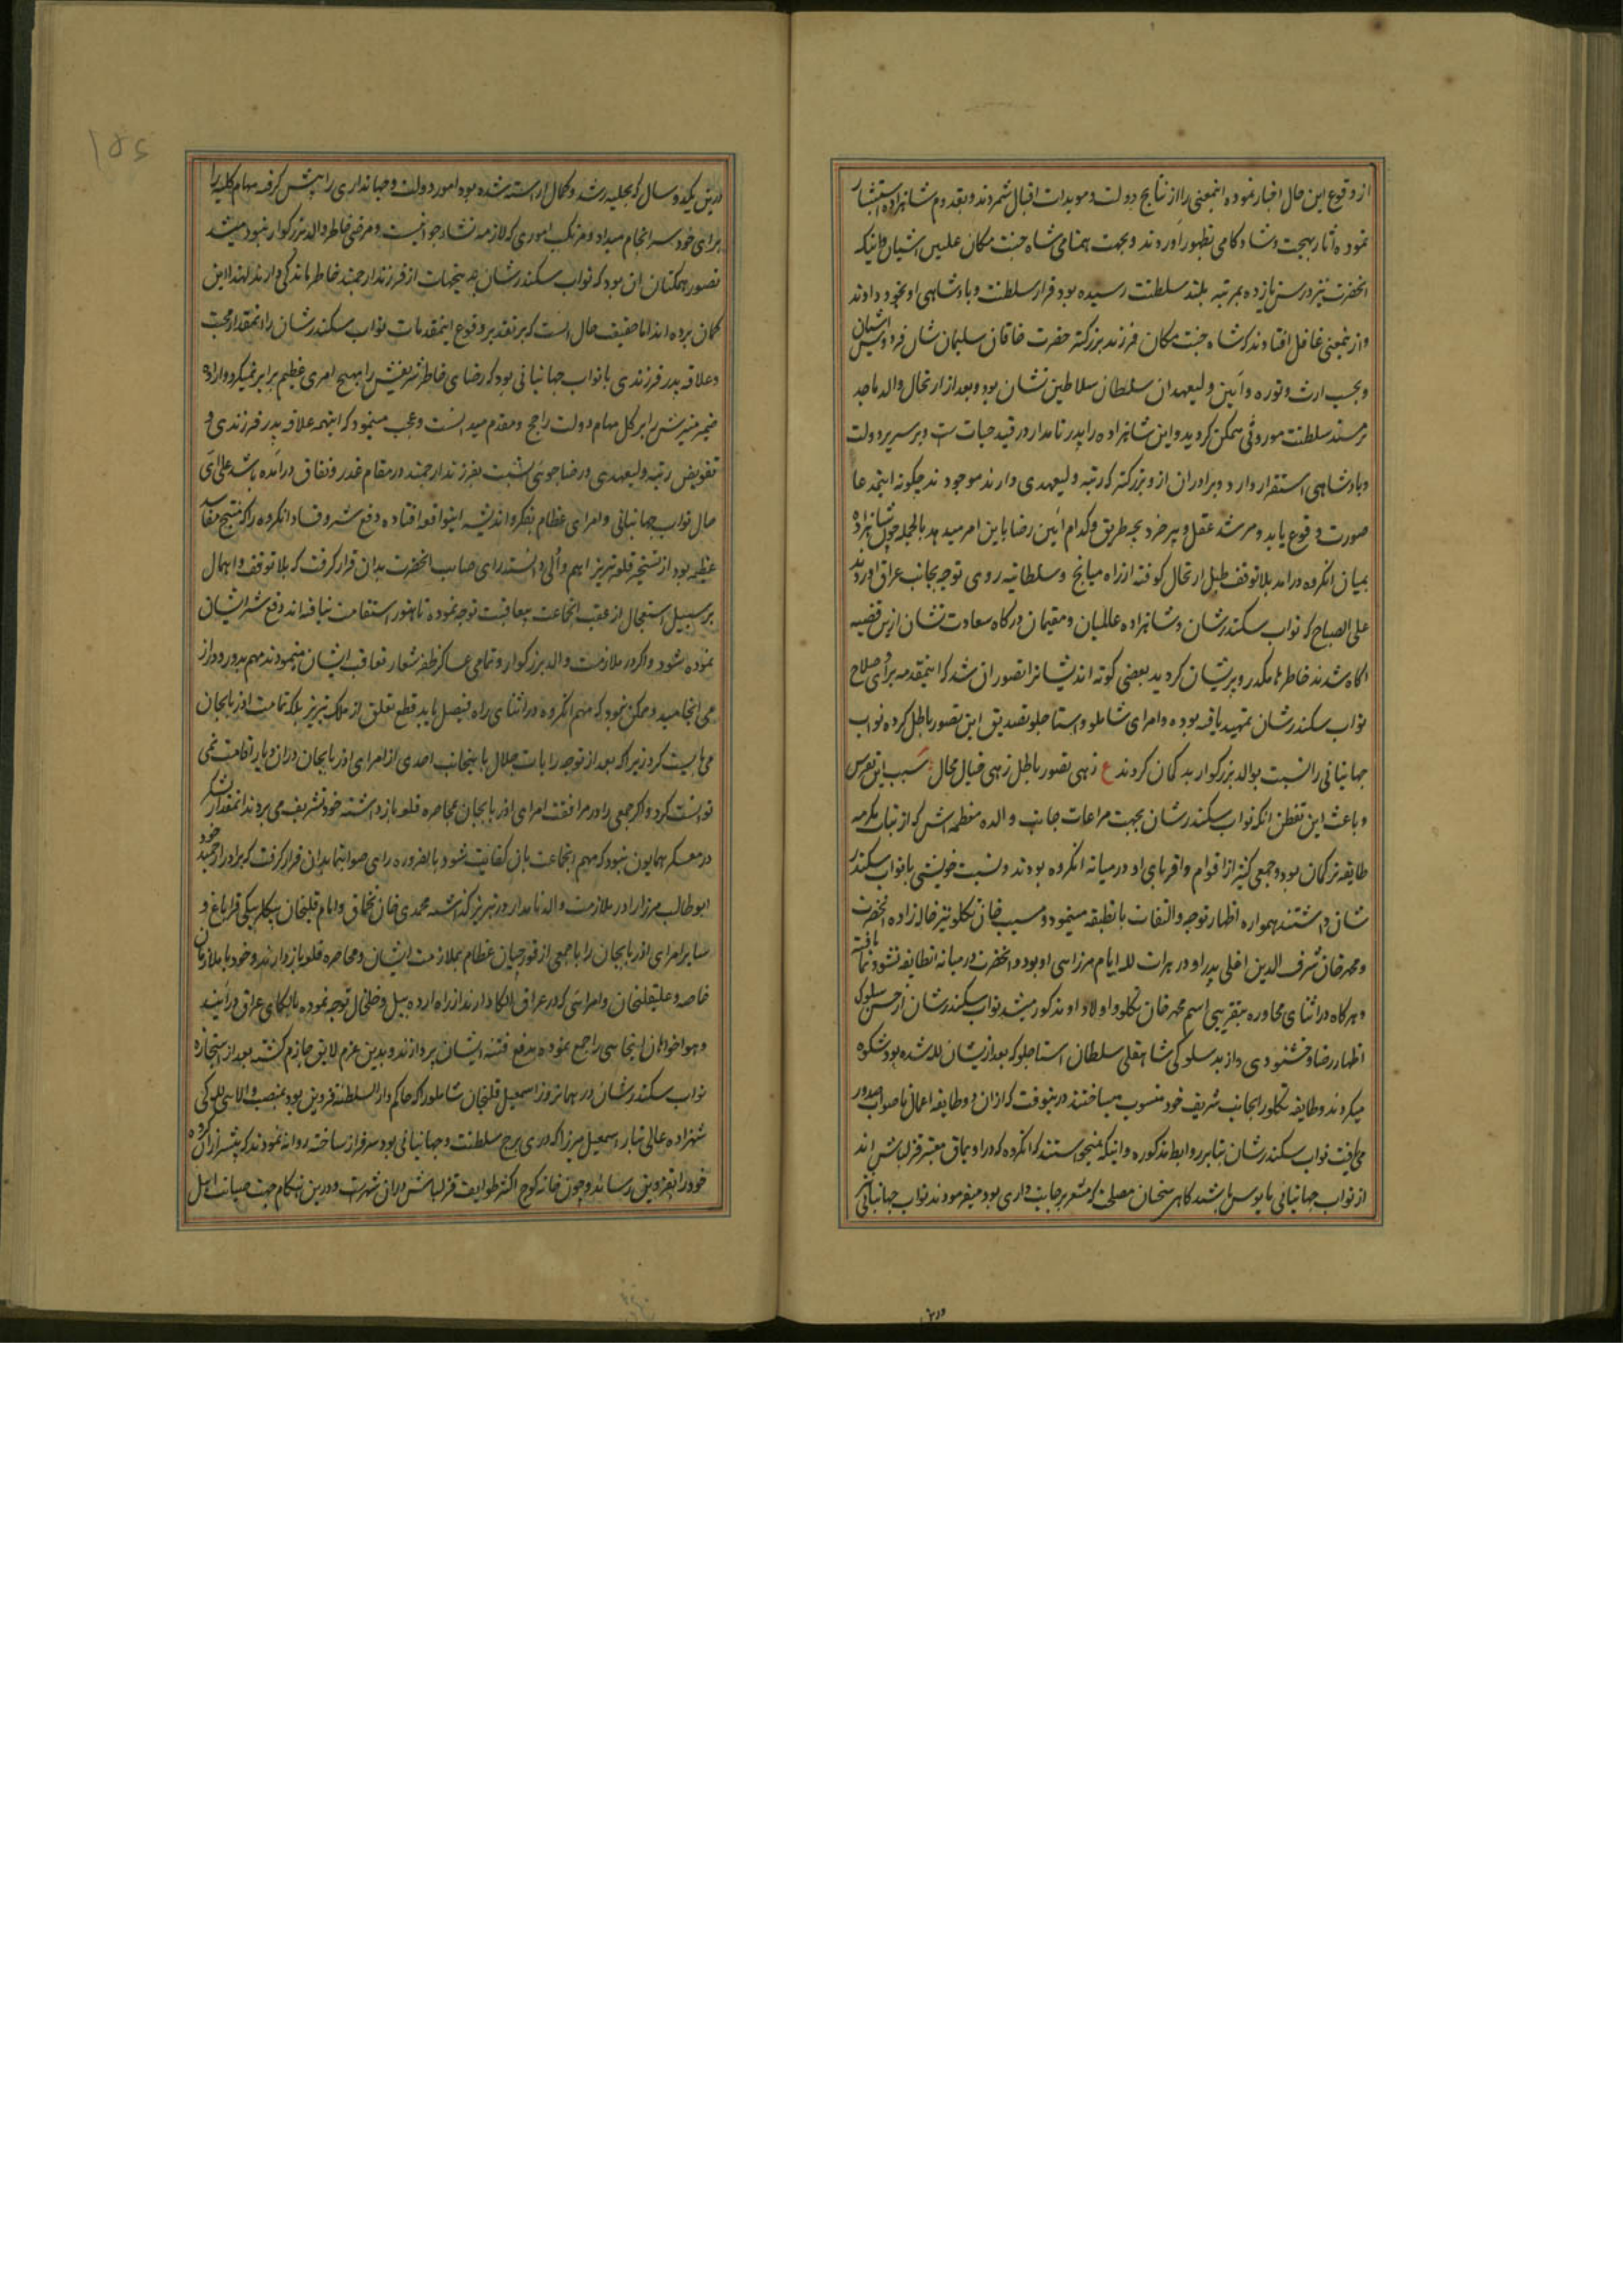 از وقوع این حال اخبار نموده اینمعنی را از نتایج دولت و مویدات اقبال شمردند و بقدوم شاهزاده استبشار
نموده آثار بهجت و شادکامی بظهور آوردند و بجهت همنامی شاه جنت مکان علیین آشیان و اینکه
انحضرت نیز در سن یازده بمرتبه بلند سلطنت رسیده بود قرار سلطنت و پادشاهی او بخود دادند
و از ینمعنی غافل افتادند که شاه جنت مکان فرزند بزرکتر حضرت خاقان سلیمان شان فردوس آشیان
و بحسب ارث و توره و آیین ولیعهد ان سلطان سلاطین نشان بود و بعد از ارتحال والد ماجد
بر مسند سلطنت موروثی متمکن کردید و این شاهزاده را پدر نامدار در قید حیات است و بر سریر دولت
و پادشاهی استقرار دارد و برادران از و بزرکتر که رتبه ولیعهدی دارند موجودند چکونه اینمدعا
صورت وقوع یابد و مرشد عقل و پیر خرد بچه طریق و کدام آیین رضا باین امر میدهد بالجمله چون شاهزاده
بمیان انکروه درامد بلا توقف طبل ارتحال کوفته از راه میانج و سلطانیه روی توجه بجانب عراق اوردند
علی الصباح که نواب سکندرشان و شاهزاده عالمیان و مقیمان درکاه سعادت نشان ازین قضیه
اکاه شدند خاطرها مکدر و پریشان کردید بعضی کوته اندیشانرا تصور ان شد که اینمقدمه برای و صلاح
نواب سکندرشان تمهید یافته بوده و امرای شاملو و استاجلو تصدیق این تصور باطل کرده نواب
جهانبانی را نسبت بوالد بزرکوار بد کمان کردند ع زهی تصور باطل زهی خیال محال سبب این تفرس
و باعث این تفطن انکه نواب سکندرشان بجهت مراعات جانب والده معظمه اش که از بنات مکرمه
طایفه ترکمان بود و جمعی کثیر از اقوام و اقربای او در میانه انکروه بودند و نسبت خویشی با نواب سکندر
شان داشتند همواره اظهار توجه و التفات بانطبقه مینمود و مسیب خان تکلو نیز خاله زاده انحضرت
و محمد خان شرف الدین اغلی پدر او در هرات لله ایام مرزایی او بود و انحضرت در میانه انطایفه نشو و نما یافته
و هرکاه در اثنای محاوره بتقریبی اسم محمد خان تکلو و اولاد او مذکور میشد نواب سکندرشان از حسن سلوک
اظهار رضا و خشنودی و از بدسلوکی شاهقلی سلطان استاجلو که بعد ازیشان لله شده بود شکوه
میکردند و طایفه تکلو را بجانب شریف خود منسوب میساختند درینوقت که ازان دو طایفه اعمال ناصواب صدور
می یافت نواب سکندرشان بنابر روابط مذکوره و اینکه نمیخواستند که انکروه که دو اویماق معتبر قزلباش اند
از نواب جهانبانی مایوس باشند کاهی سخنان مصلح که مشعر بر جانب داری بود میفرمودند نواب جهانبانی
درین
۱۵۵
درین یکدو سال که بحلیه رشد و کمال اراسته شده بود امور دولت و جهانداری را پیش کرفته مهام کلیه را
برای خود سرانجام میداد و مرتکب اموری که لازمه نشاء جوانیست و مرضی خاطر والد بزرکوار نبود میشد
تصور همکنان ان بود که نواب سکندرشان به اینجهات از فرزند ارجمند خاطر ماندکی دارند لهذا این
کمان برده اند اما حقیقت حال انست که بر تقدیر وقوع اینمقدمات نواب سکندرشان را انمقدار محبت
و علاقه پدر فرزندی با نواب جهانبانی بود که رضای خاطر شریفش را بهیچ امری عظیم برابر نمیکرد و اراده
ضمیر منیرش را بر کل مهام دولت راجح و مقدم میدانست و عجب مینمود که اینهمه علاقه پدر فرزندی و
تفویض رتبه ولیعهدی و رضاجویی نسبت بفرزند ارجمند در مقام غدر و نفاق درآمده باشد علی ای
حال نواب جهانبانی و امرای عظام بفکر و اندیشه اینواقعه افتاده دفع شر و فساد انکروه را که منتج مفاسد
عظیمه بود از تسخیر قلعه تبریز اهم و اولی دانسته رای صایب انحضرت بدان قرار کرفت که بلا توقف و اهمال
بر سبیل استعجال از عقب انجماعت بمعاقبت توجه نموده تا هنوز استقامت نیافته اند دفع شر ایشان
نموده شود و اکر در ملازمت والد بزرکوار و تمامی عساکر ظفر شعار تعاقب ایشان مینمودند مهم بدور و دراز
می انجامید و ممکن نبود که مهم انکروه در اثنای راه فیصل یابد قطع تعلق از ملک تبریز بلکه تمامت اذربایجان
می بایست کرد زیرا که بعد از توجه رایات جلال باینجانب احدی از امرای اذربایجان دران دیار اقامت نمی
توانست کرد و اکر جمعی را در مرافقت امرای اذربایجان بمحاصره قلعه بازداشته خود تشریف می بردند انمقدار لشکر
در معسکر همایون نبود که مهم انجماعت بان کفایت شود بالضروره رای صوابنما بدان قرار کرفت که برادر ارجمند خود
ابوطالب مرزا را در ملازمت والد نامدار در تبریز کذاشته محمدی خان تخماق و امام قلیخان بیکلربیکی قراباغ و
سایر امرای اذربایجان را با جمعی از قورچیان عظام بملازمت ایشان و محاصره قلعه بازدارند و خود با ملازمان
خاصه و علیقلیخان و امرایی که در عراق الکا دارند از راه اردبیل و خلخال توجه نموده بالکای عراق درآیند
و هواخواهان انجایی را جمع نموده بدفع فتنه ایشان پردازند و بدین عزم لایق جازم کشته بعد از استجازه
نواب سکندرشان در همانروز اسمعیل قلیخان شاملو را که حاکم دارالسلطنه قزوین بود بمنصب والای للکی
شهزاده عالی تبار اسمعیل مرزا که دری برج سلطنت و جهانبانی بود سرفراز ساخته روانه نمودند که پیشتر ازان کروه
خود را بقزوین رساند و چون خانه کوچ اکثر طوایف قزلباش دران شهرست و درین هنکام جهت صیانت اهل